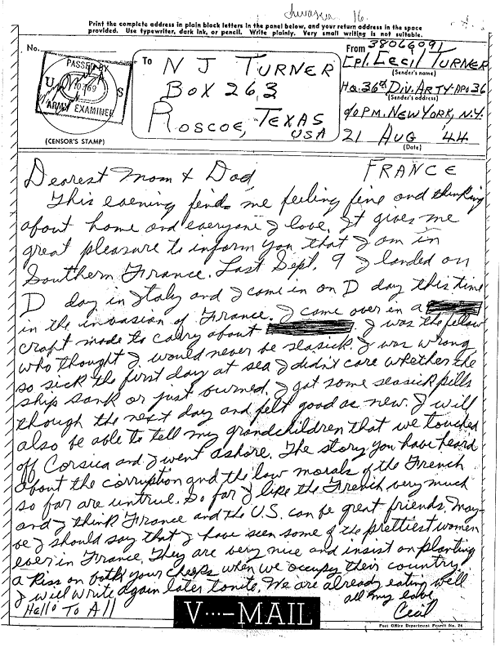 Invasion 16
Print the complete address in plain block letters in the panel below, and your return address in the space
provided. Use typewriter, dark ink, or pencil. Write plainly. Very small writing is not suitable.
No.
PASSED BY
U S
ARMY EXAMINER
(CENSOR'S STAMP)
To
N J TURNER
BOX 263
ROSCOE, TEXAS
USA
From 38066091
Cpl. Cecil TURNER
(Sender's name)
Hq. 36th Div. ARTY APO 36
(Sender's address)
c/o P.M. NEW YORK, N.Y.
21 AUG '44
(Date)
FRANCE
Dearest Mom & Dad,
This evening finds me feeling fine and thinking
about home and everyone I love. It gives me
great pleasure to inform you that I am in
Southern France. Last Sept. 9 I landed on
D day in Italy and I came in on D day this time
in the invasion of France. I came over in a
craft made to carry about . I was the fellow
who thought I would never be seasick I was wrong
so sick the first day at sea I didn't care whether the
ship sank or just burned. I got some seasick pills
though the next day and felt good as new. I will
also be able to tell my grandchildren that we touched
off Corsica and I went ashore. The story you have heard
about the corruption and the low morals of the French
so far are untrue. So far I like the French very much
and I think France and the U.S. can be great friends. May-
be I should say that I have seen some of the prettiest women
ever in France. They are very nice and insist on planting
a kiss on both your cheeks when we occupy their country.
I will write again later tonite. We are already eating well
Hello To All
all my love
Cecil
V···—MAIL
Post Office Department Permit No. 24